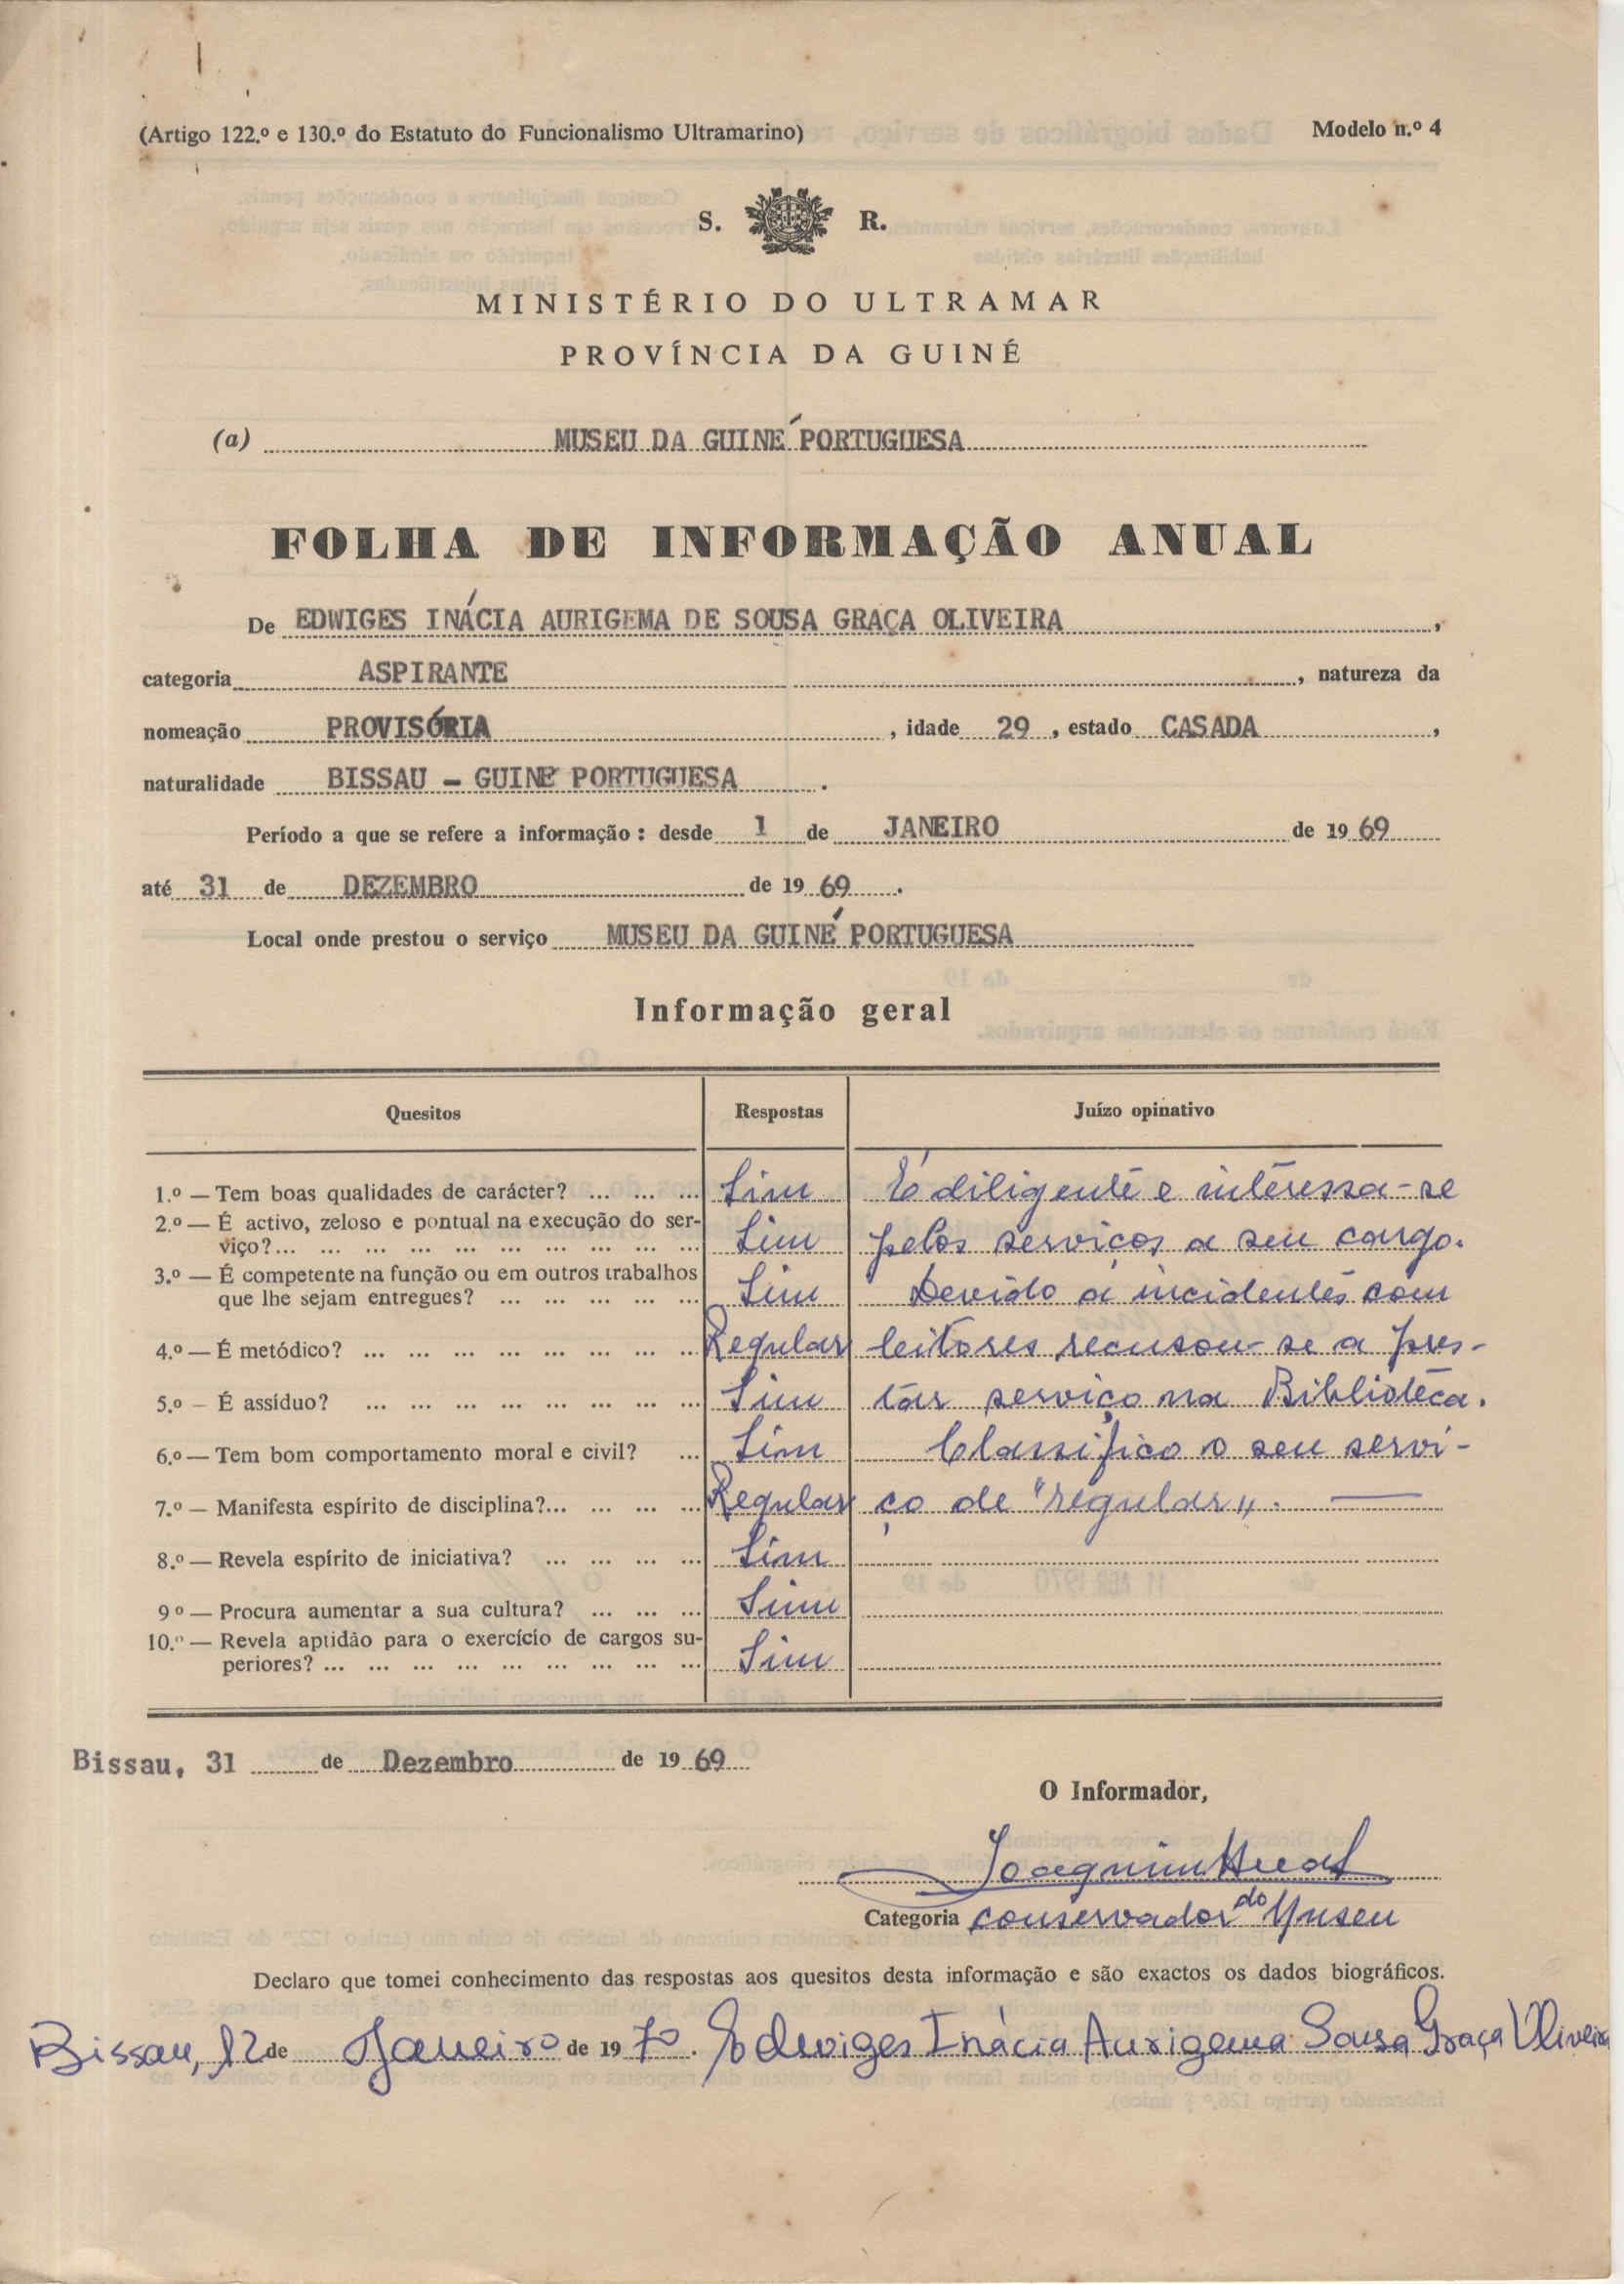 (Artigo 122.º e 130.º do Estatuto do Funcionalismo Ultramarino) Modelo n.º 4
S. R.
MINISTÉRIO DO ULTRAMAR
PROVÍNCIA DA GUINÉ
(a) MUSEU DA GUINÉ PORTUGUESA
FOLHA DE INFORMAÇÃO ANUAL
De EDWIGES INÁCIA AURIGEMA DE SOUSA GRAÇA OLIVEIRA,
categoria ASPIRANTE, natureza da
nomeação PROVISÓRIA, idade 29, estado CASADA,
naturalidade BISSAU - GUINÉ PORTUGUESA.
Período a que se refere a informação: desde 1 de JANEIRO de 1969
até 31 de DEZEMBRO de 1969.
Local onde prestou o serviço MUSEU DA GUINÉ PORTUGUESA
Informação geral
Quesitos Respostas Juízo opinativo
1.º — Tem boas qualidades de carácter? ... ... ... Sim É diligente e interessa-se
2.º — É activo, zeloso e pontual na execução do ser-
viço? ... ... ... ... ... ... ... ... ... ... Sim pelos serviços a seu cargo.
3.º — É competente na função ou em outros trabalhos
que lhe sejam entregues? ... ... ... ... ... Sim Devido a incidentes com
4.º — É metódico? ... ... ... ... ... ... ... ... Regular leitores recusou-se a pres-
5.º — É assíduo? ... ... ... ... ... ... ... ... Sim tar serviço na Biblioteca.
6.º — Tem bom comportamento moral e civil? ... Sim Classifico o seu servi-
7.º — Manifesta espírito de disciplina? ... ... ... ... Regular ço de "regular".
8.º — Revela espírito de iniciativa? ... ... ... ... Sim
9.º — Procura aumentar a sua cultura? ... ... ... Sim
10.º — Revela aptidão para o exercício de cargos su-
periores? ... ... ... ... ... ... ... ... ... Sim
Bissau, 31 de Dezembro de 1969
O Informador,
Joaquim
Categoria conservador do Museu
Declaro que tomei conhecimento das respostas aos quesitos desta informação e são exactos os dados biográficos.
Bissau, 12 de Janeiro de 1970. Edwiges Inácia Aurigema Sousa Graça Oliveira